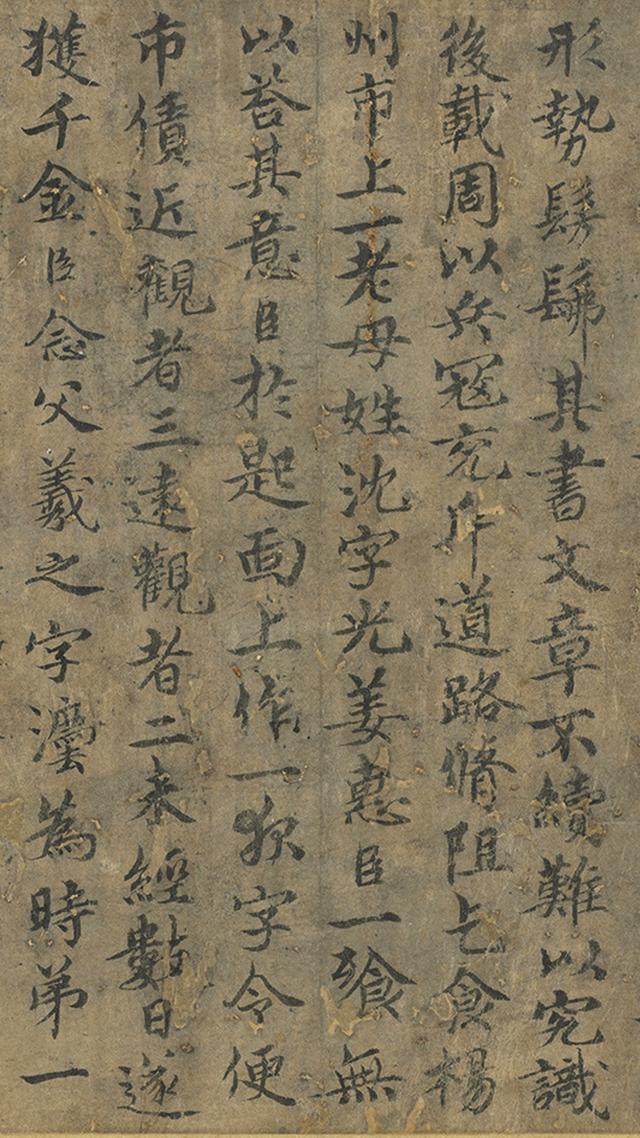 形勢髣髴其書文章不續難以究識
後載周以兵寇充斥道路脩阻乞食楊
州市上一老母姓沈字光姜惠臣一飱無
以荅其意臣於匙面上作一夜字令便
市債近觀者三遠觀者二未經數日遂
獲千金臣念父羲之字法為時第一